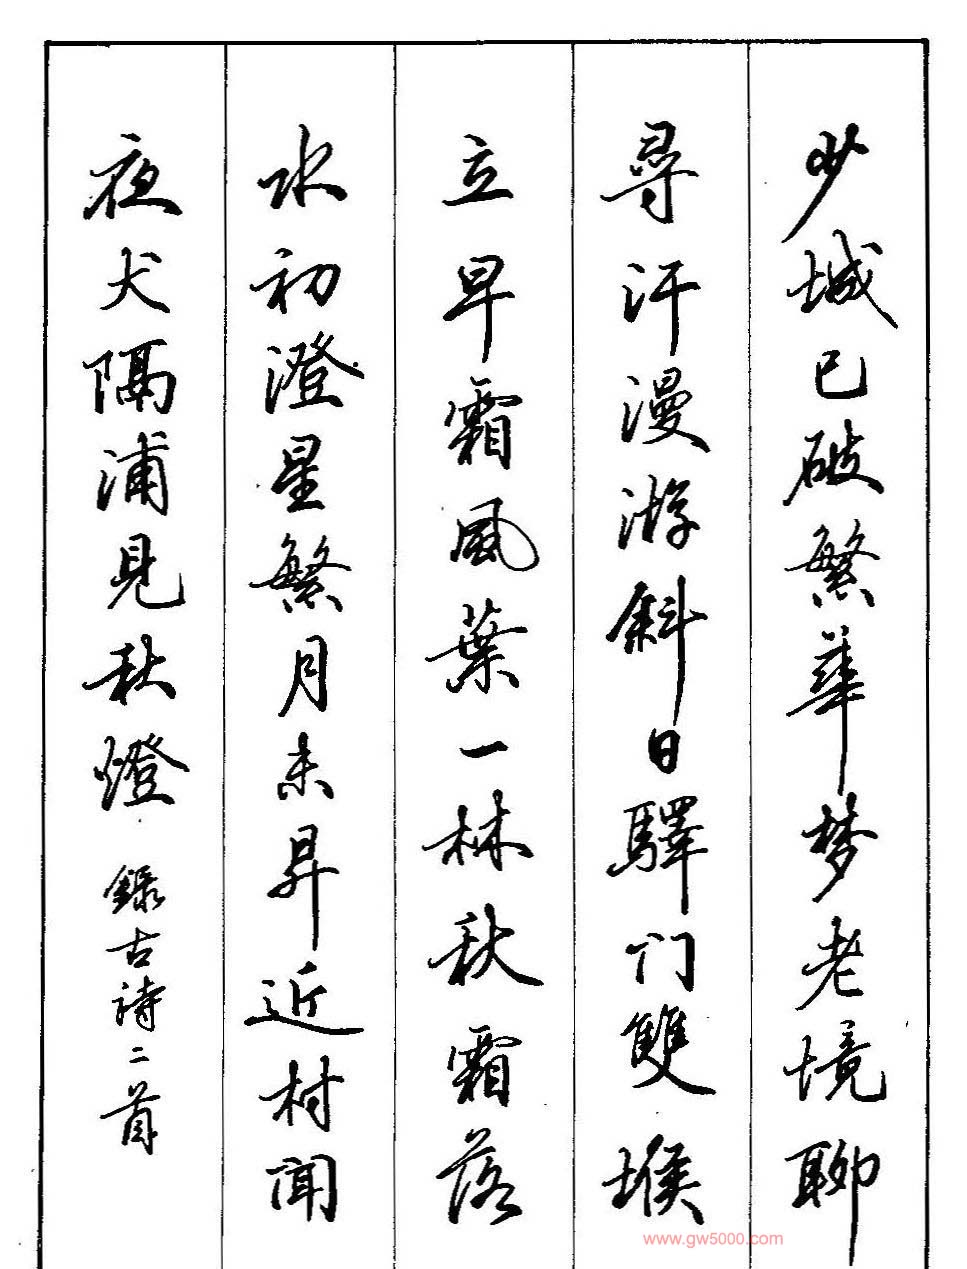 少城已破繁華梦老境聊
尋汗漫游斜日驛门雙堠
立早霜風葉一林秋霜落
水初澄星繁月未昇近村聞
夜犬隔浦見秋燈 錄古詩二首
www.gw5000.com